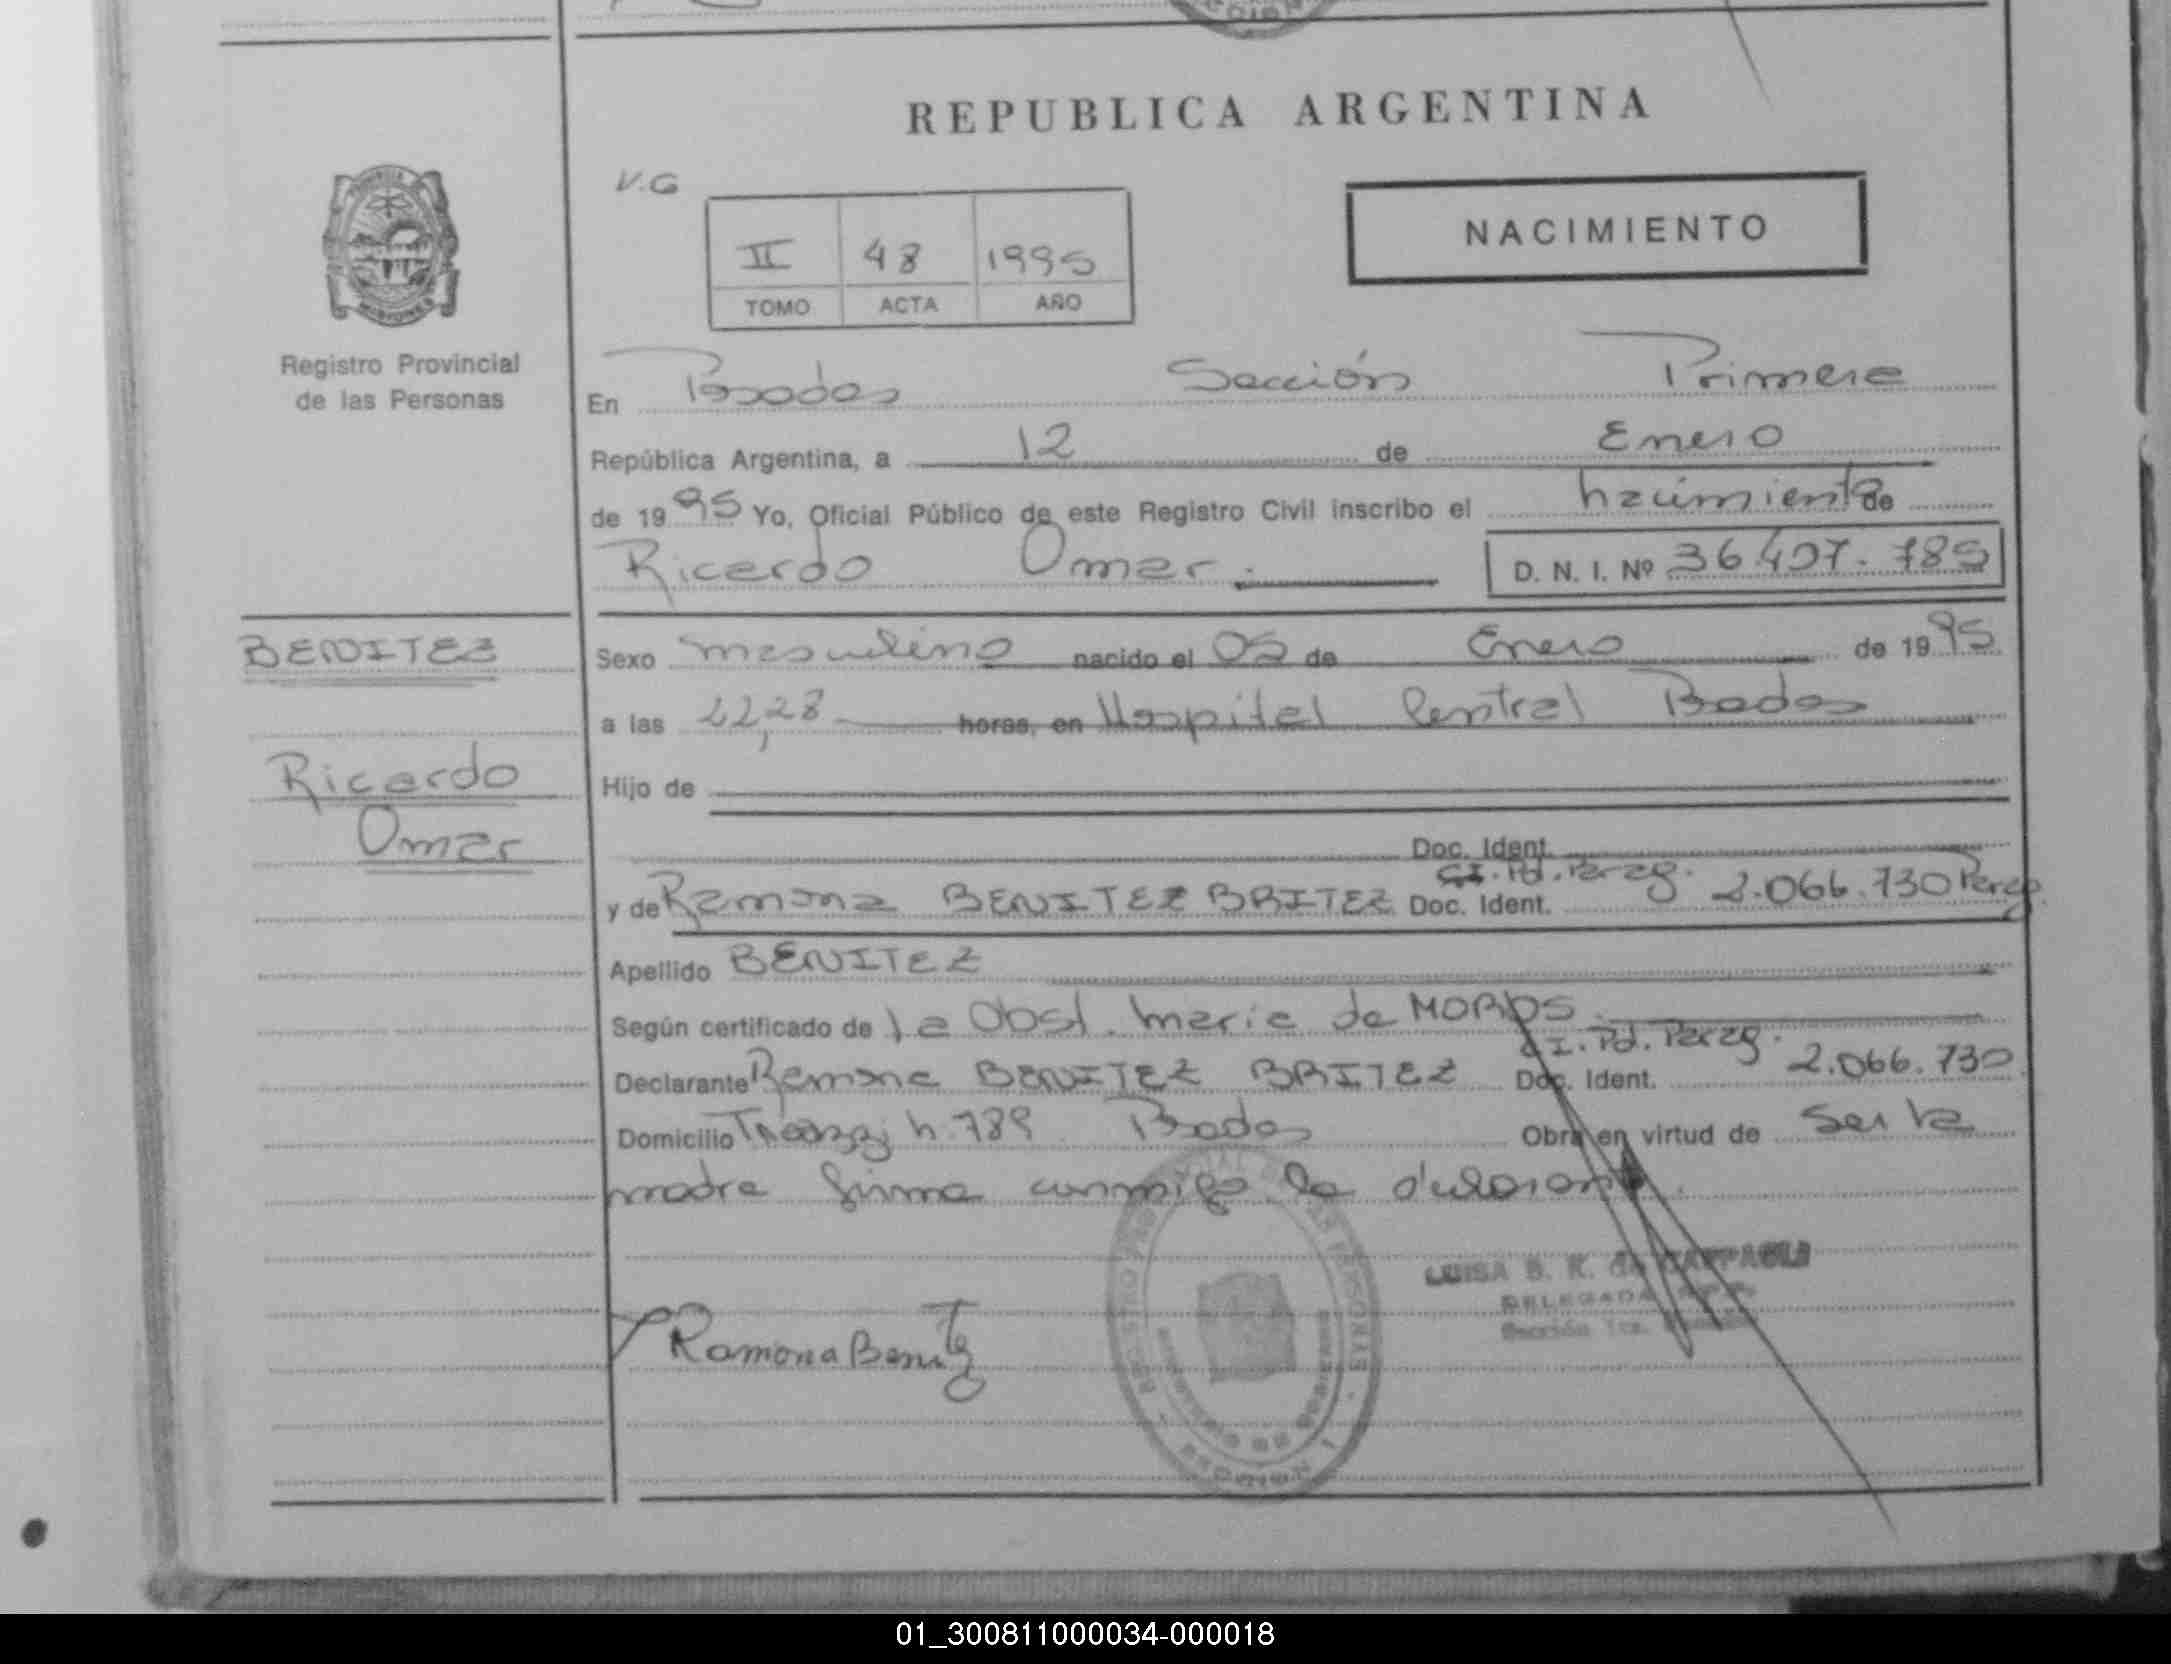 REPUBLICA ARGENTINA
V.G
NACIMIENTO
II 48 1995
TOMO ACTA AÑO
Registro Provincial
de las Personas
En Posadas Sección Primera
República Argentina, a 12 de Enero
de 1995 Yo, Oficial Público de este Registro Civil inscribo el nacimiento de
Ricardo Omar. D. N. I. Nº 36.407.785
BENITEZ
Ricardo
Omar
Sexo masculino nacido el 05 de Enero de 1995
a las 22,28 horas, en Hospital Central Posadas
Hijo de
Doc. Ident.
CI. Pol. Parag.
y de Ramona BENITEZ BRITEZ Doc. Ident. 2.066.730 Parag
Apellido BENITEZ
Según certificado de la Obst. Maria de
CI. Pol. Parag.
Declarante Ramona BENITEZ BRITEZ Doc. Ident. 2.066.730
Domicilio h. 789 Posadas Obra en virtud de Ser la
madre firma conmigo la declarante.
LUISA B. R. de
DELEGADA
Sección 1ra.
Ramona Benitez
01_300811000034-000018